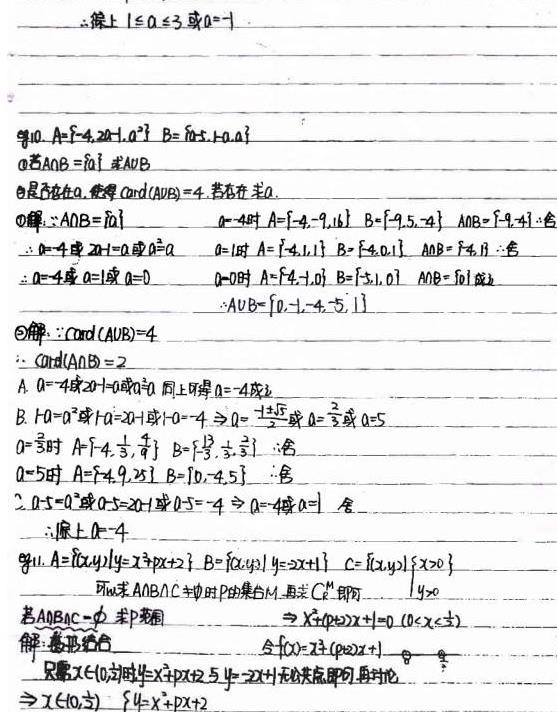 ∴综上 1≤a≤3 或a=-1
eg10. A={-4, 2a-1, a²} B={a-5, 1-a, a}
①若A∩B={a} 求A∪B
②是否存在a, 使得Card(A∪B)=4, 若存在求a.
①解: ∵A∩B={a} a=-4时 A={-4,-9,16} B={-9,5,-4} A∩B={-9,-4} ∴舍
∴a=-4或 2a-1=a或a²=a a=1时 A={-4,1,1} B={-4,0,1} A∩B={-4,1} ∴舍
∴a=-4或 a=1或 a=0 a=0时 A={-4,-1,0} B={-5,1,0} A∩B={0} 成立
∴A∪B={0,-1,-4,-5,1}
②解: ∵Card(A∪B)=4
∴ Card(A∩B)=2
A. a=-4或2a-1=a或a²=a 同上可得a=-4成立
B. 1-a=a²或1-a=2a-1或1-a=-4 ⇒ a=(-1±√5)/2 或 a=2/3 或 a=5
a=2/3时 A={-4, 1/3, 4/9} B={-13/3, 1/3, 2/3} ∴舍
a=5时 A={-4,9,25} B={0,-4,5} ∴舍
a-5=a²或a-5=2a-1或a-5=-4 ⇒ a=-4或a=1 舍
∴综上 a=-4
eg11. A={(x,y)|y=x²+px+2} B={(x,y)|y=-2x+1} C={(x,y)|{x>0
可以求A∩B∩C≠ϕ时P的集合M 再求C_R^M即可 y>0
若A∩B∩C=ϕ 求P范围 ⇒ x²+(p+2)x+1=0 (0<x<1/2)
解: 数形结合 令f(x)=x²+(p+2)x+1 0 1/2
只需x∈(0,1/2)时y=x²+px+2与y=-2x+1无公共点即可 再讨论
⇒ x∈(0,1/2) {y=x²+px+2